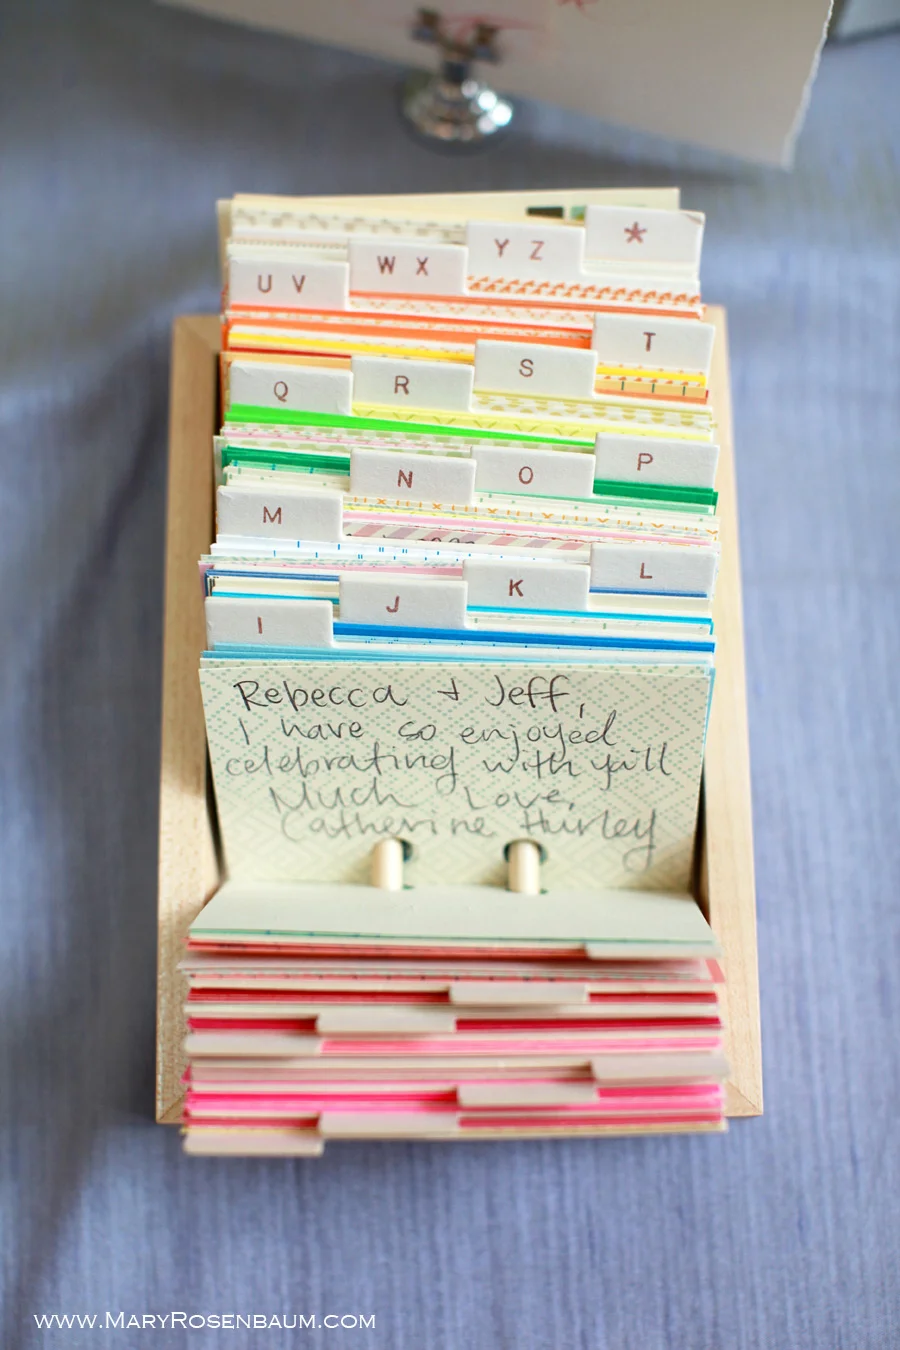 *
Y Z
W X
U V
T
S
R
Q
P
O
N
M
L
K
J
I
Rebecca + Jeff,
I have so enjoyed
celebrating with ya'll
Much Love,
Catherine Hurley
www.MaryRosenbaum.com